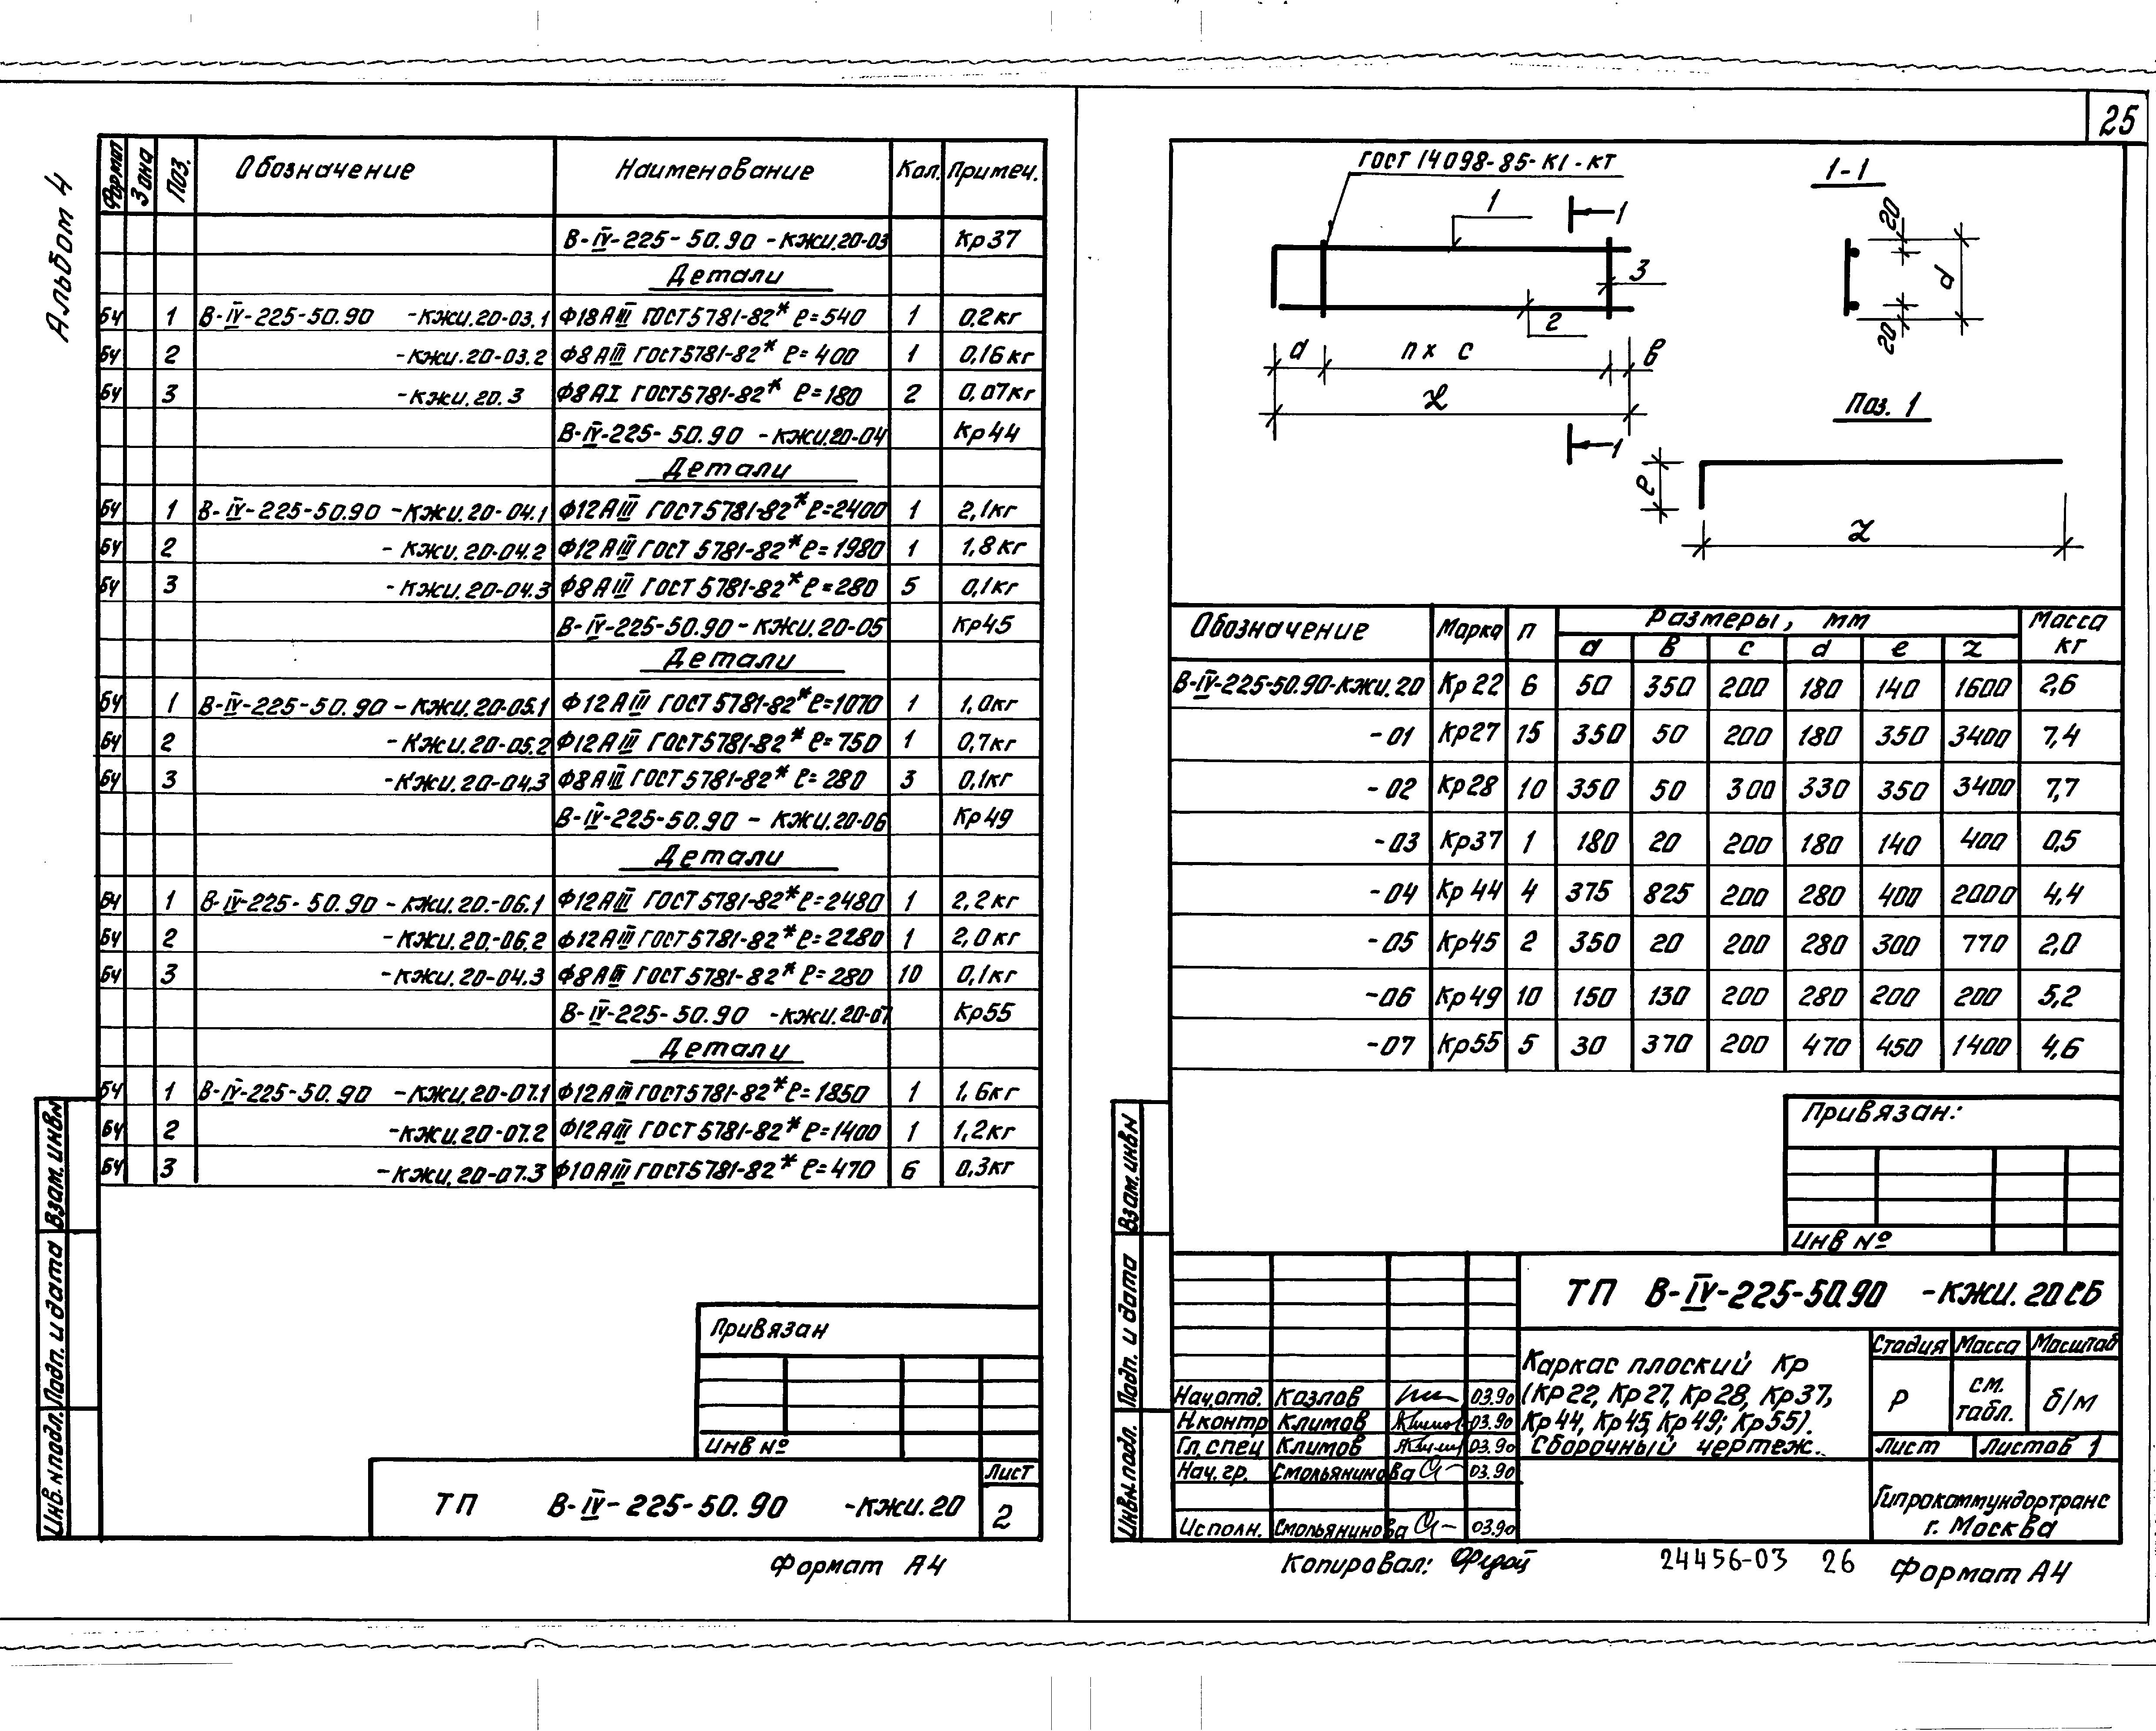 25
Альбом 4
Формат Зона Поз. Обозначение Наименование Кол. Примеч.
В-IV-225-50.90 -КЖИ.20-03 Кр37
Детали
БЧ 1 В-IV-225-50.90 -КЖИ.20-03.1 Ф18АIII ГОСТ5781-82* ℓ=540 1 0.2кг
БЧ 2 -КЖИ.20-03.2 Ф8АIII ГОСТ5781-82* ℓ=400 1 0,16кг
БЧ 3 -КЖИ.20.3 Ф8АI ГОСТ5781-82* ℓ=180 2 0,07кг
В-IV-225-50.90 -КЖИ.20-04 Кр44
Детали
БЧ 1 В-IV-225-50.90 -КЖИ.20-04.1 Ф12АIII ГОСТ5781-82* ℓ=2400 1 2,1кг
БЧ 2 -КЖИ.20-04.2 Ф12АIII ГОСТ 5781-82* ℓ=1980 1 1,8кг
БЧ 3 -КЖИ.20-04.3 Ф8АIII ГОСТ 5781-82* ℓ=280 5 0,1кг
В-IV-225-50.90-КЖИ.20-05 Кр45
Детали
БЧ 1 В-IV-225-50.90-КЖИ.20-05.1 Ф12АIII ГОСТ 5781-82* ℓ=1070 1 1,0кг
БЧ 2 -КЖИ.20-05.2 Ф12АIII ГОСТ5781-82* ℓ=750 1 0,7кг
БЧ 3 -КЖИ.20-04.3 Ф8АIII ГОСТ 5781-82* ℓ=280 3 0,1кг
В-IV-225-50.90 - КЖИ.20-06 Кр49
Детали
БЧ 1 В-IV-225-50.90-КЖИ.20.-06.1 Ф12АIII ГОСТ 5781-82* ℓ=2480 1 2,2кг
БЧ 2 -КЖИ.20.-06.2 Ф12АIII ГОСТ5781-82* ℓ=2280 1 2,0кг
БЧ 3 -КЖИ.20-04.3 Ф8АIII ГОСТ 5781-82* ℓ=280 10 0,1кг
В-IV-225-50.90 -КЖИ.20-07 Кр55
Детали
БЧ 1 В-IV-225-50.90 -КЖИ.20-07.1 Ф12АIII ГОСТ5781-82* ℓ=1850 1 1,6кг
БЧ 2 -КЖИ.20-07.2 Ф12АIII ГОСТ5781-82* ℓ=1400 1 1,2кг
БЧ 3 -КЖИ.20-07.3 Ф10АIII ГОСТ5781-82* ℓ=470 6 0,3кг
Взам.инв№
Подп. и дата
Инв.№подл.
Привязан
Инв №
ТП В-IV-225-50.90 -КЖИ.20
Лист
2
Формат А4
ГОСТ 14098-85-К1-КТ
1
1
3
2
a n x c в
L
1
1-1
20
d
20
Поз. 1
ℓ
L
Обозначение Марка n Размеры, мм Масса кг
a в c d e L
В-IV-225-50.90-КЖИ.20 Кр22 6 50 350 200 180 140 1600 2,6
-01 Кр27 15 350 50 200 180 350 3400 7,4
-02 Кр28 10 350 50 300 330 350 3400 7,7
-03 Кр37 1 180 20 200 180 140 400 0,5
-04 Кр44 4 375 825 200 280 400 2000 4,4
-05 Кр45 2 350 20 200 280 300 770 2,0
-06 Кр49 10 150 130 200 280 200 200 5,2
-07 Кр55 5 30 370 200 470 450 1400 4,6
Взам.инв№
Подп. и дата
Инв№подл.
Привязан:
Инв №
ТП В-IV-225-50.90 -КЖИ.20СБ
Каркас плоский Кр
(Кр22, Кр27, Кр28, Кр37,
Кр44, Кр45, Кр49; Кр55).
Сборочный чертеж.
Стадия Масса Масштаб
Р см. табл. б/м
Лист Листов 1
Нач.отд. Козлов 03.90
Н.контр Климов 03.90
Гл.спец Климов 03.90
Нач.гр. Смольянинова 03.90
Исполн. Смольянинова 03.90
Гипрокоммундортранс
г. Москва
Копировал:
24456-03 26
Формат А4